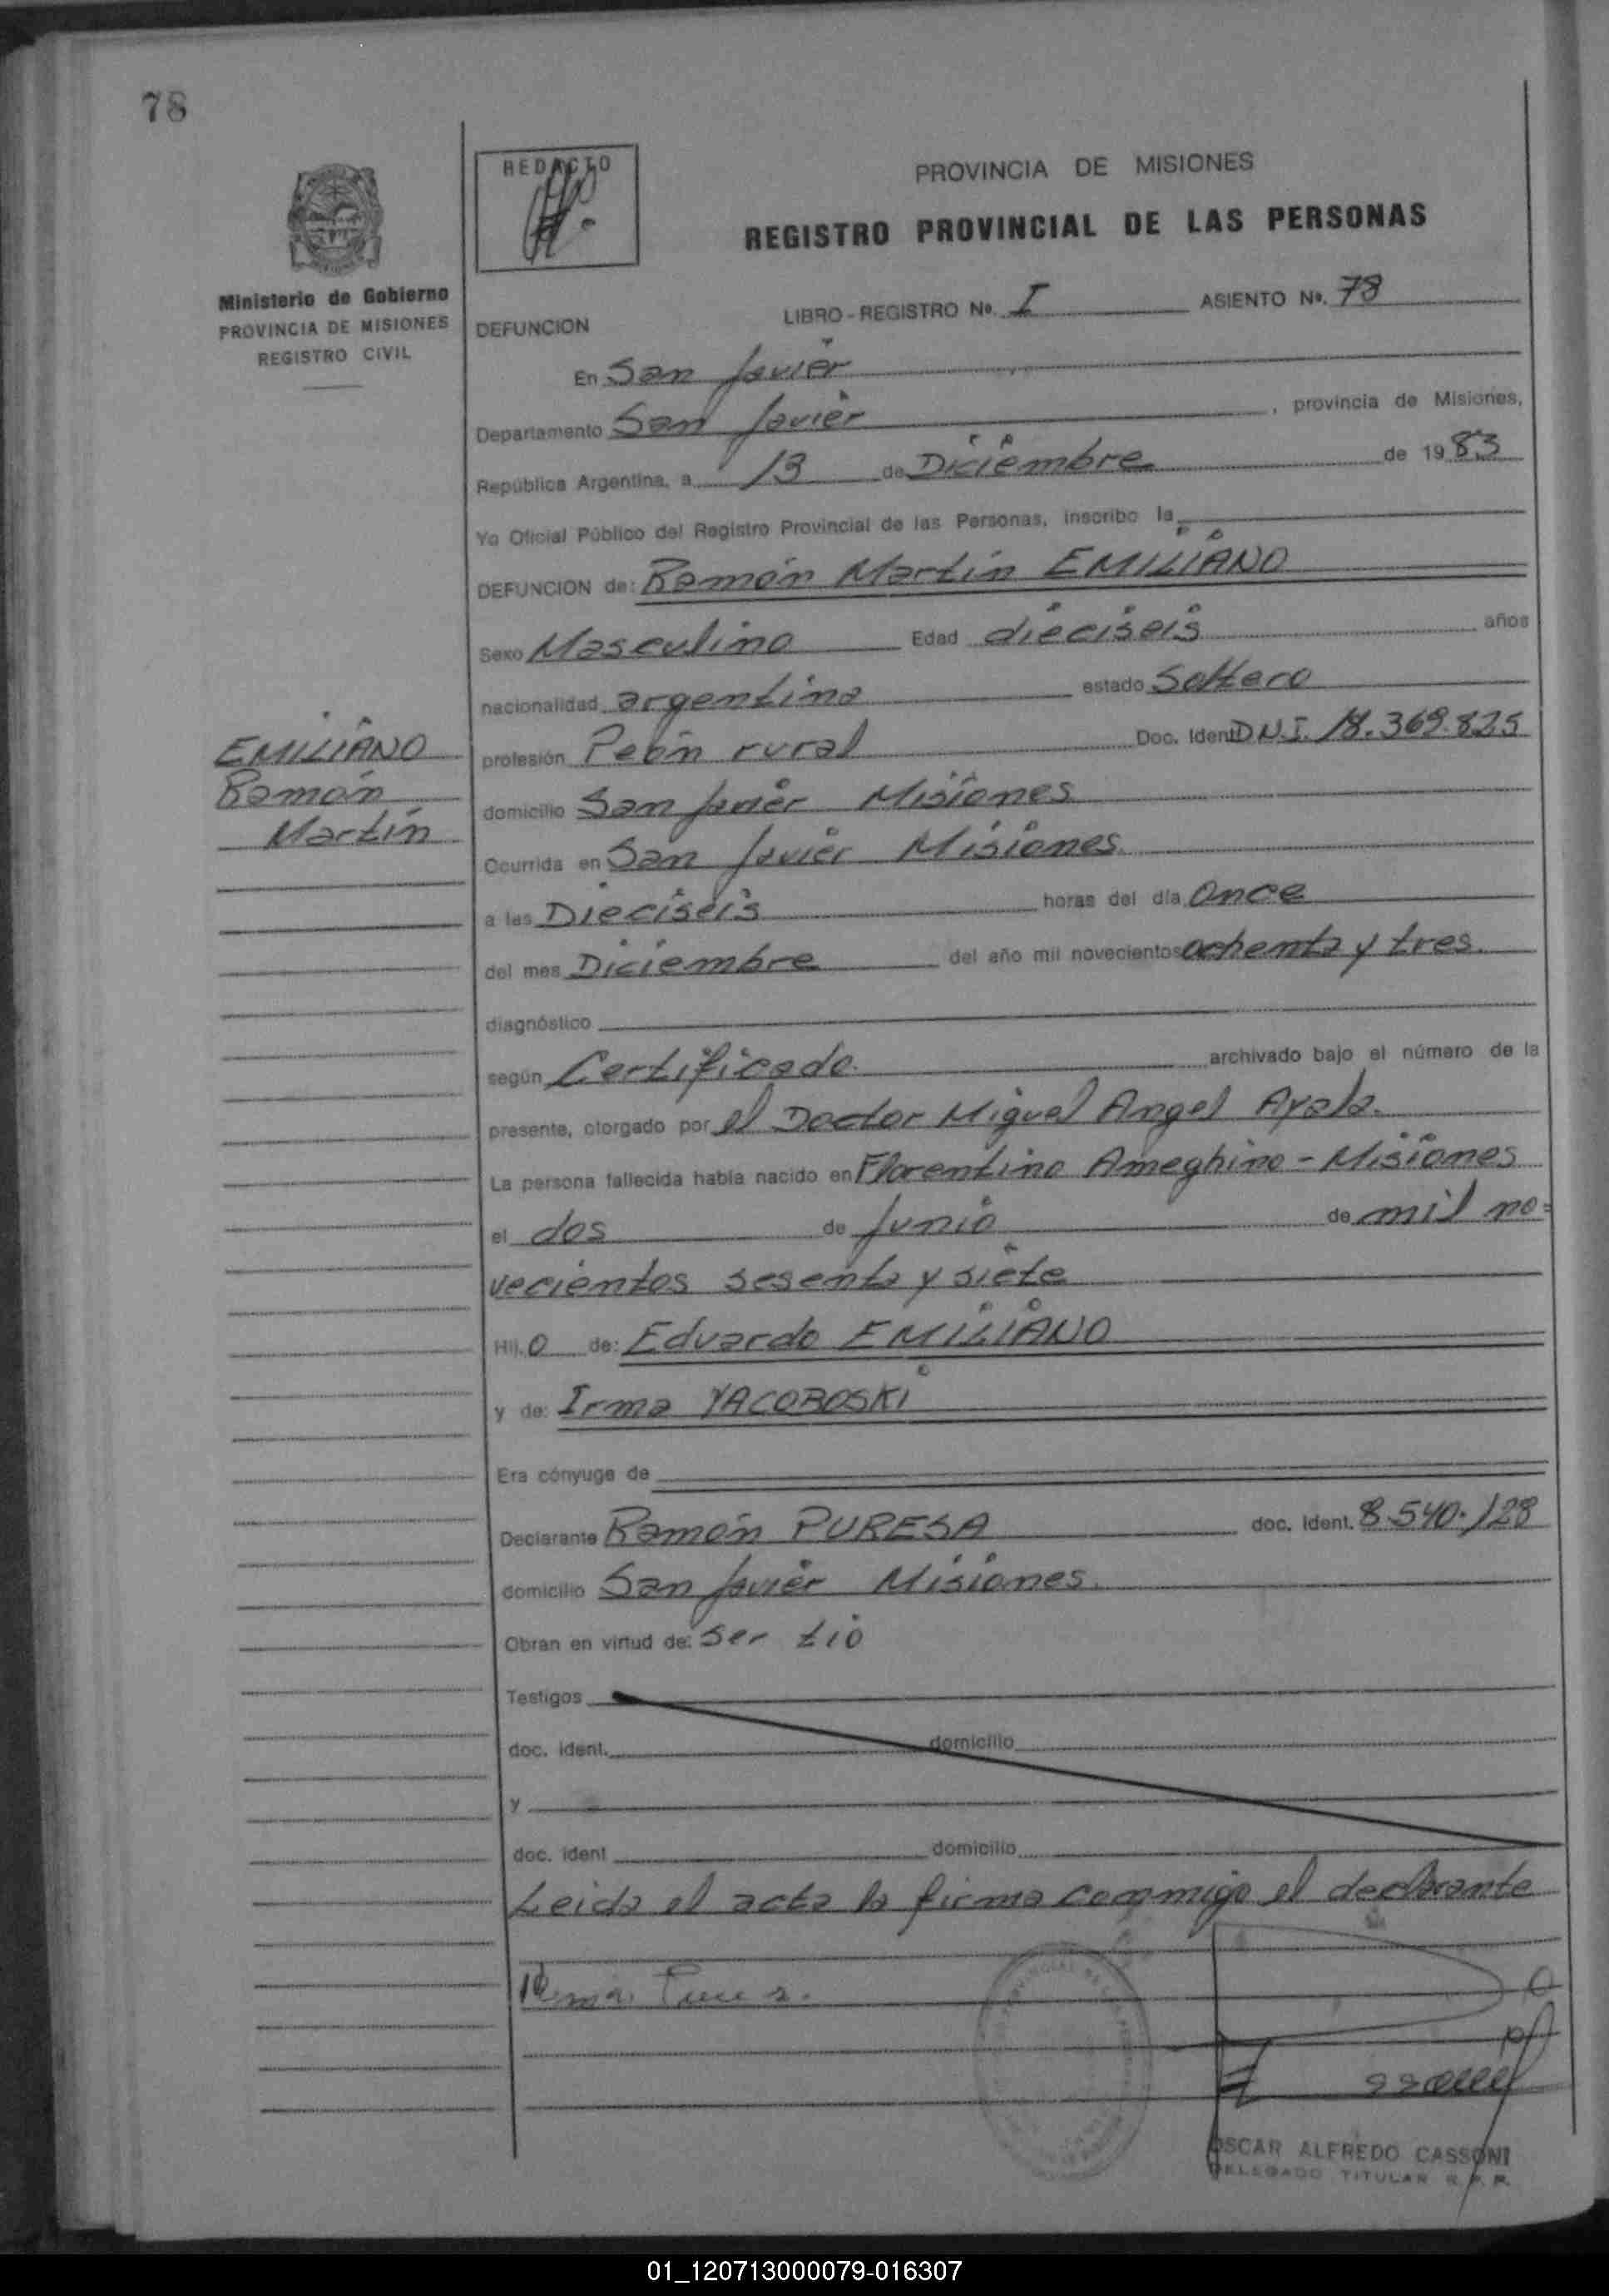 78
REDACTO
PROVINCIA DE MISIONES
REGISTRO PROVINCIAL DE LAS PERSONAS
Ministerio de Gobierno
PROVINCIA DE MISIONES
REGISTRO CIVIL
LIBRO - REGISTRO No. I ASIENTO No. 78
DEFUNCION
En San Javier
Departamento San Javier, provincia de Misiones,
República Argentina, a 13 de Diciembre de 1983
Yo Oficial Público del Registro Provincial de las Personas, inscribo la
DEFUNCION de: Ramón Martín EMILIANO
Sexo Masculino Edad dieciseis años
nacionalidad argentina estado Soltero
EMILIANO
Ramón
Martín
profesión Peón rural Doc. Ident D.N.I. 18.369.825
domicilio San Javier Misiones
Ocurrida en San Javier Misiones.
a las Dieciseis horas del día Once
del mes Diciembre del año mil novecientos ochenta y tres.
diagnóstico
según Certificado. archivado bajo el número de la
presente, otorgado por el Doctor Miguel Angel Ayala.
La persona fallecida había nacido en Florentino Ameghino - Misiones
el dos de Junio de mil no=
vecientos sesenta y siete
Hij.o de: Eduardo EMILIANO
y de: Irma YACOBOSKI
Era cónyuge de
Declarante Ramón PURESA doc. Ident. 8.540.128
domicilio San Javier Misiones.
Obran en virtud de: Ser tio
Testigos
doc. ident. domicilio
y
doc. ident domicilio
Leida el acta la firma conmigo el declarante
OSCAR ALFREDO CASSONI
DELEGADO TITULAR R. P. P.
01_120713000079-016307